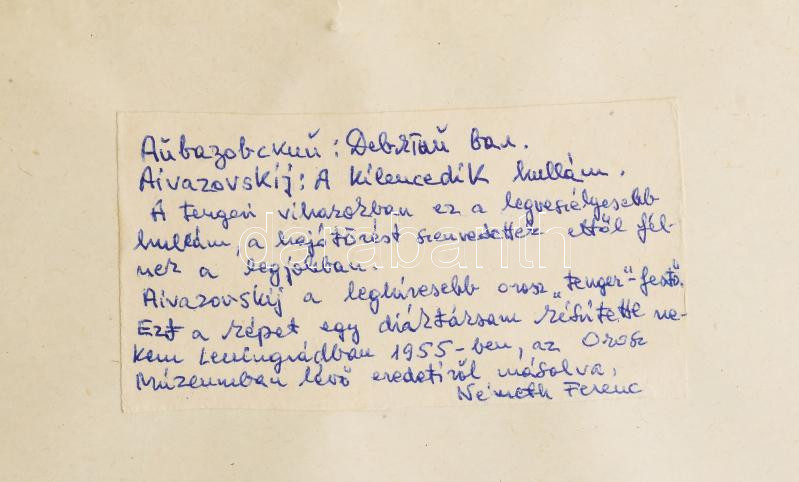 Айвазовский: Девятый вал.
Aivazovskij: A kilencedik hullám.
A tengeri viharokban ez a legveszélyesebb
hullám, a hajótörést szenvedettek ettől fél-
nek a legjobban.
Aivazovskij a leghíresebb orosz „tenger"-festő.
Ezt a képet egy diáktársam készítette ne-
kem Leningrádban 1955-ben, az Orosz
Múzeumban lévő eredetiről másolva,
Németh Ferenc
darabanth